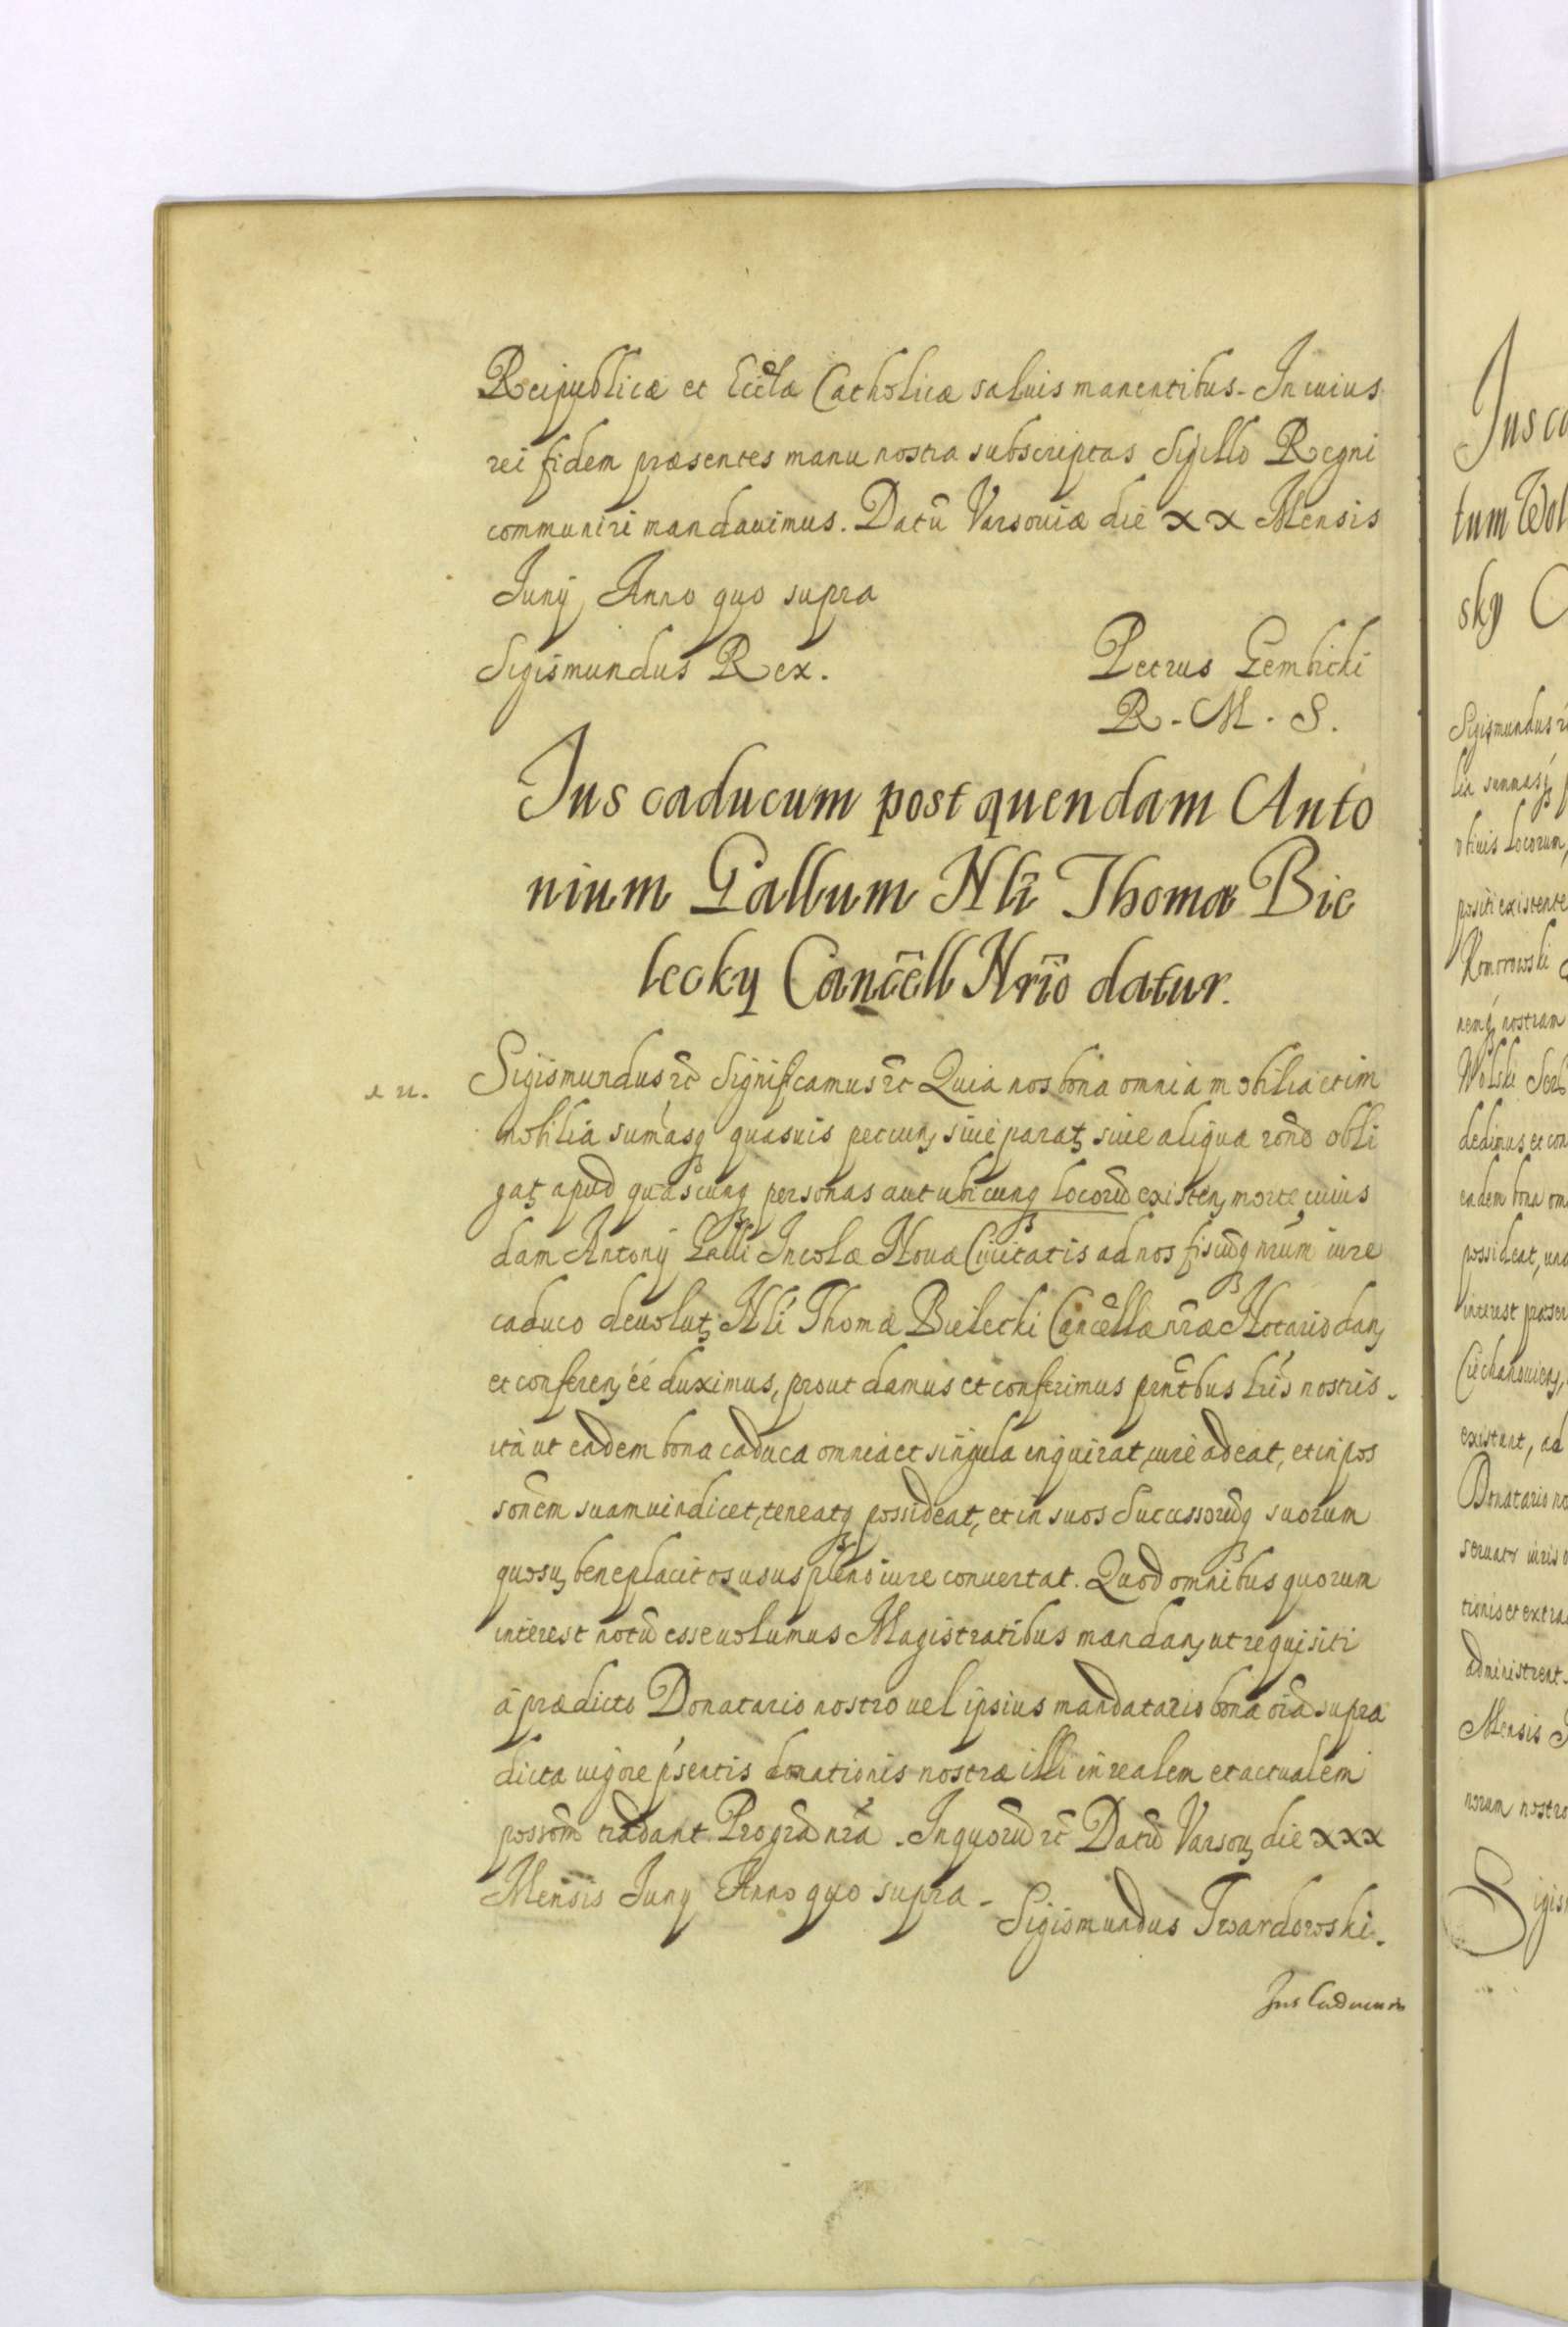 Reipublicæ et Eccłæ Catholicæ saluis manentibus. In cuius
rei fidem præsentes manu nostra subscriptas Sigillo Regni
communiri mandauimus. Datū Varsouiæ die xx Mensis
Junÿ Anno quo supra
Sigismundus Rex.
Petrus Gembicki
R. M. S.
Jus caducum post quendam Anto
nium Gallum Nli Thomæ Bie
lecky Cancell Nrio datur.
Sigismundus etc Significamus etc Quia nos bona omnia mobilia et im
mobilia sum̄asq quasuis pecun, siue parat, siue aliqua rōne obli
gat, apud quascunq personas aut ubicunq locorū existen, morte cuius
dam Antonÿ Galli Incolæ Noua Ciuitatis ad nos fiscūq nr̄um iure
caduco deuolut, Nli Thomæ Bielecki Cancellæ nr̄æ Notario dan,
et conferen, éé duximus, prout damus et conferimus prn̄tibus lr̄is nostris.
ità ut eadem bona caduca omnia et singula inquirat, iure adeat, et in pos
sōnem suam uindicet, teneatq possideat, et in suos Successorūq suorum
quosu, beneplacitos usus pleno iure conuertat. Quod omnibus quorum
interest notū esse uolumus Magistratibus mandan, ut requisiti
à prædicto Donatario nostro uel ipsius mandatario bona oīa supra
dicta uigore p̄sentis donationis nostræ illi in realem et actualem
possōm tradant Pro gr̄a nr̄a. In quorū etc Datū Varsou, die xxx
Mensis Juny Anno quo supra.
Sigismundus Twardowski.
Jus Caducum
Jus ca
tum Wol
sky
Sigismundus
obiuis locorum,
positi existente
Komorowski
nemq nostram
Wolski
dedimus et con
eadem bona om
possideat,
interest præsen
Ciechanouien,
existunt, ad
Donatario no
tionis et extra
administrent.
Mensis
norum nostro
Sigis